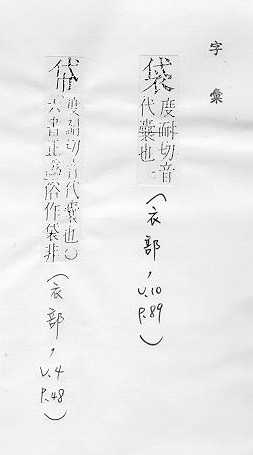 字彙
袋
度耐切音
代囊也
(衣部,
V.10
P.89)
帒
度耐切音代囊也○
六書正譌俗作袋非
(衣部,
V.4
P.48)